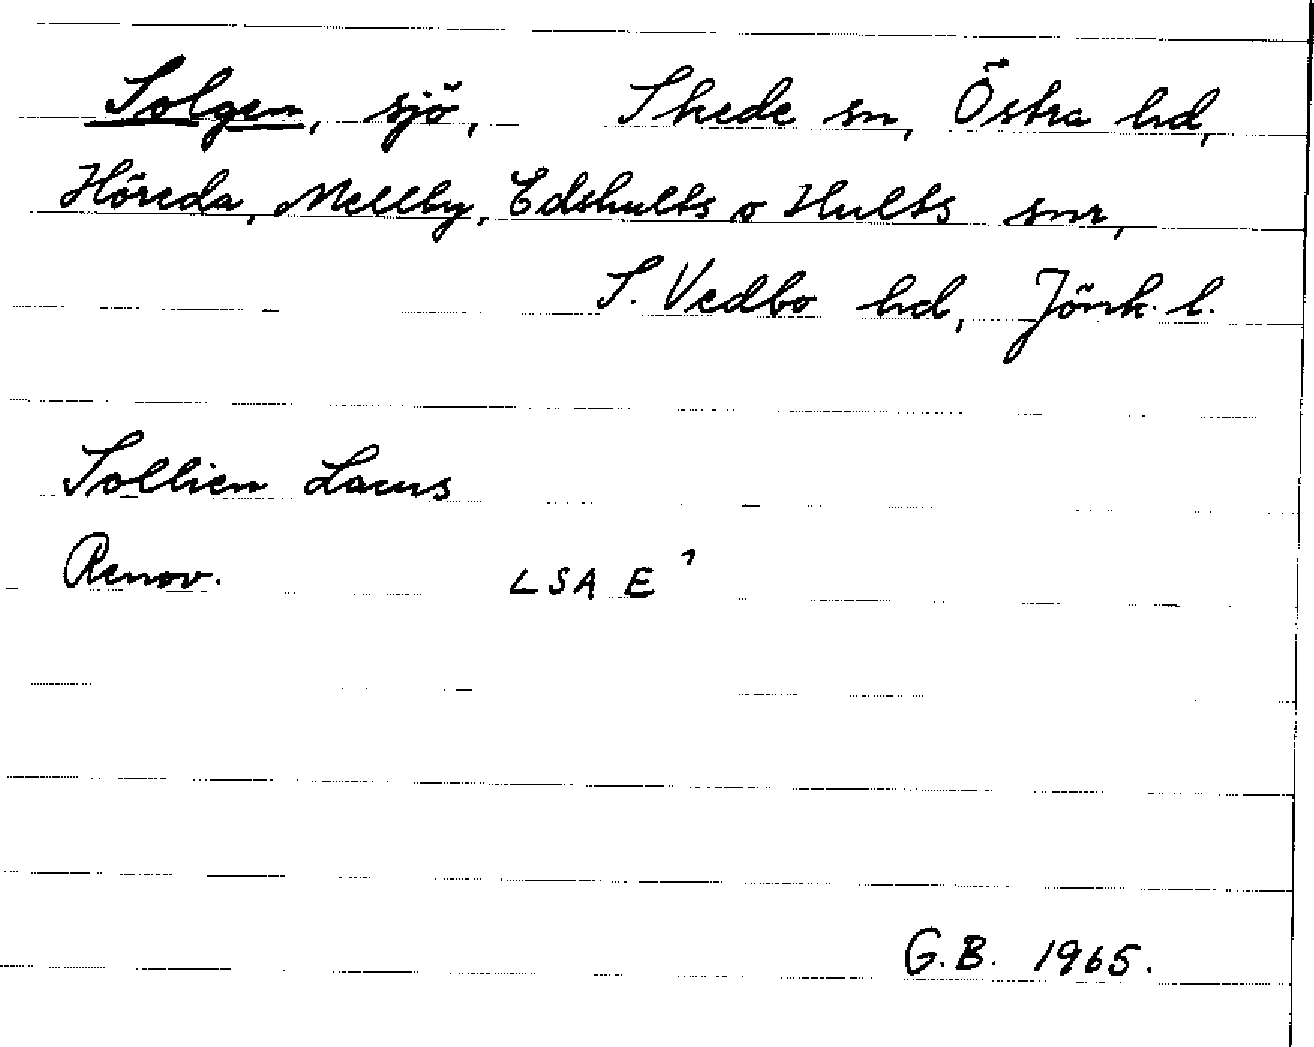 Solgen, sjö, Skede sn, Östra hd,
Höreda, Mellby, Edshults o Hults snr,
S. Vedbo hd, Jönk. l.
Sollien Lacus
Renov. LSA E 1
G.B. 1965.